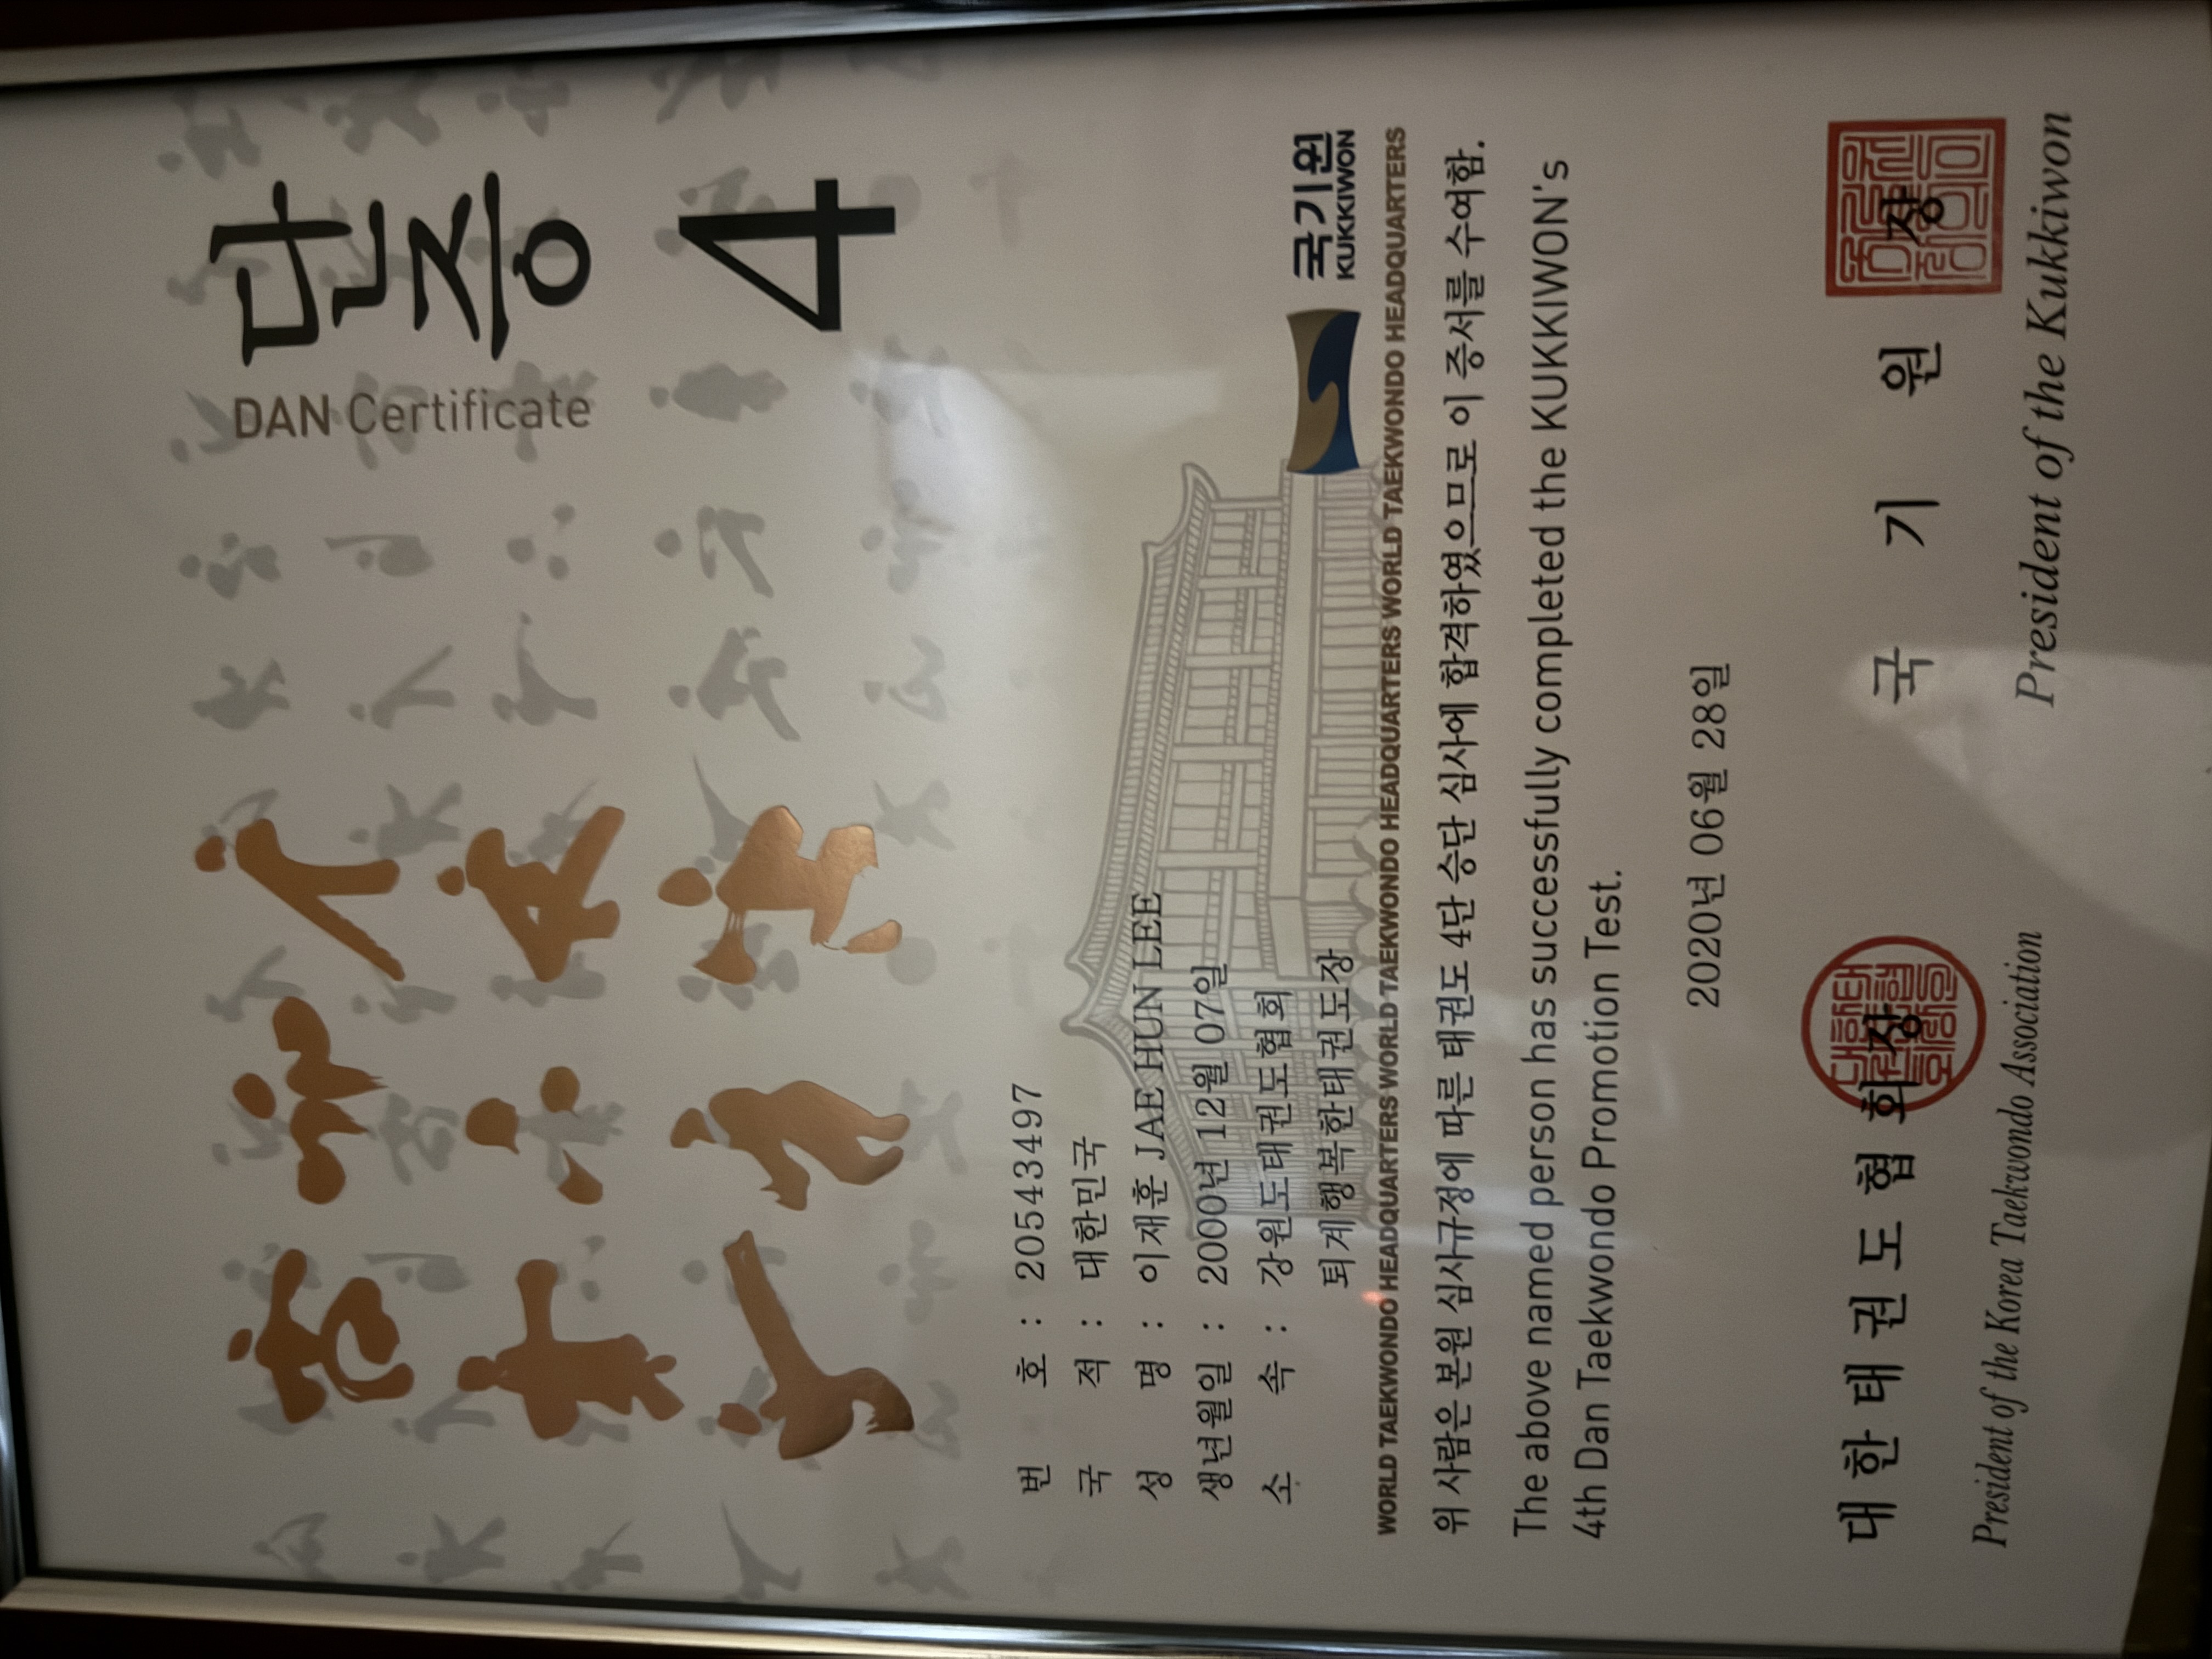 단증
DAN Certificate
4
번 호 : 20543497
국 적 : 대한민국
성 명 : 이재훈 JAE HUN LEE
생년월일 : 2000년 12월 07일
소 속 : 강원도태권도협회
퇴계행복한태권도장
국기원
KUKKIWON
WORLD TAEKWONDO HEADQUARTERS WORLD TAEKWONDO HEADQUARTERS WORLD TAEKWONDO HEADQUARTERS WORLD TAEKWONDO HEADQUARTERS
위 사람은 본원 심사규정에 따른 태권도 4단 승단 심사에 합격하였으므로 이 증서를 수여함.
The above named person has successfully completed the KUKKIWON's
4th Dan Taekwondo Promotion Test.
2020년 06월 28일
대한태권도협회장
President of the Korea Taekwondo Association
국 기 원 장
President of the Kukkiwon